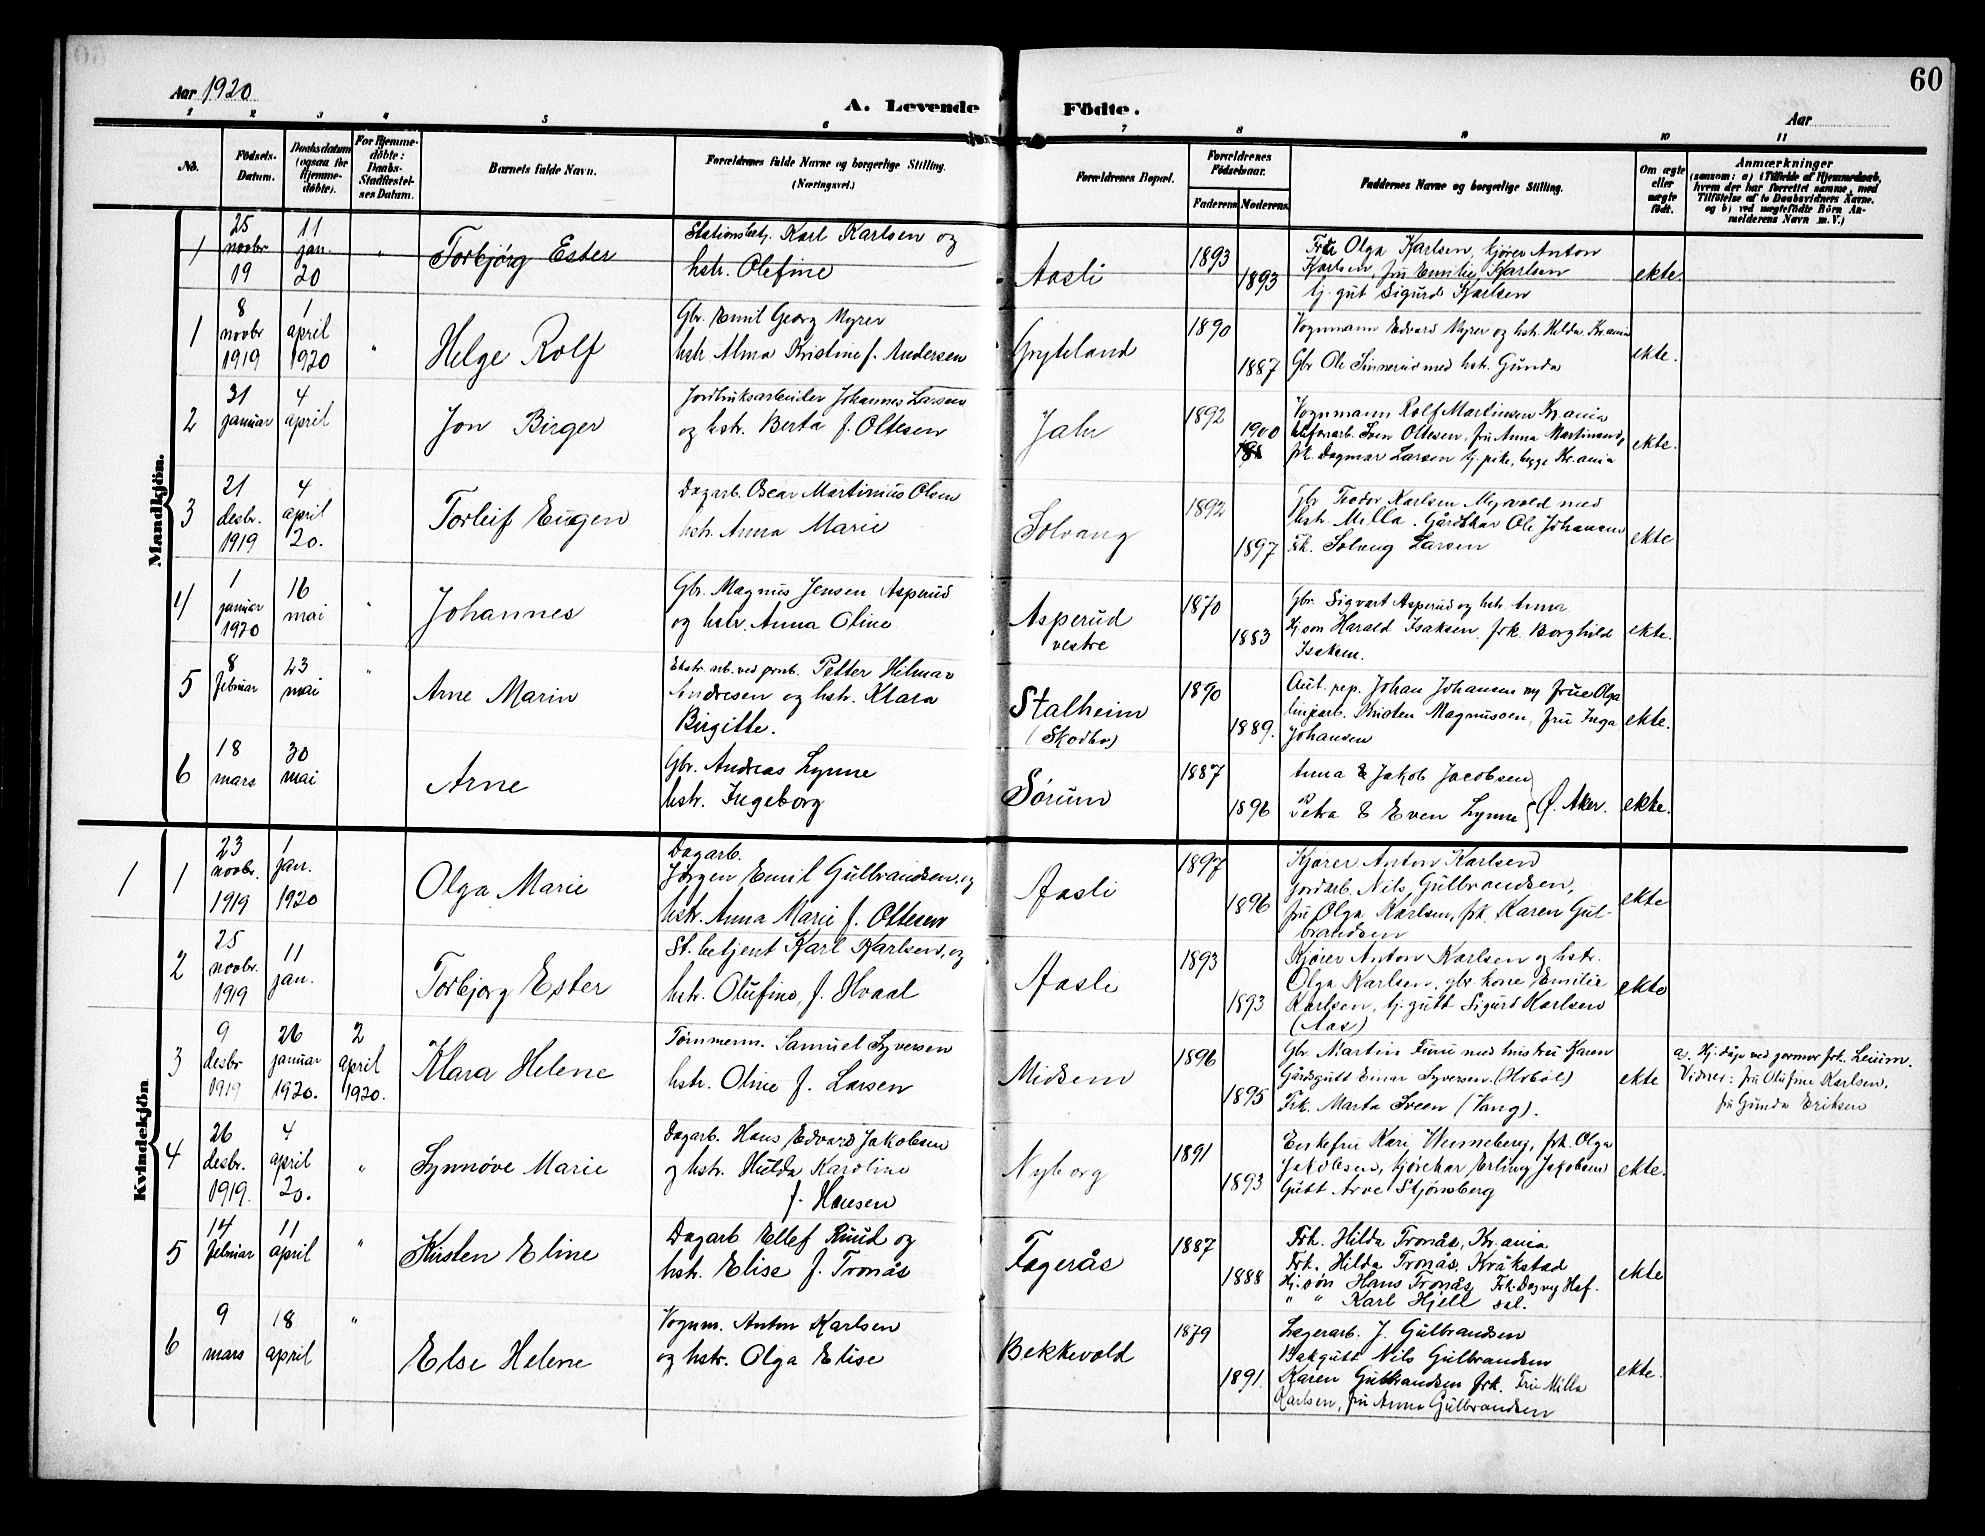 60
Aar 1920
A. Levende Födte.
Aar
1 2 3 4 5 6 7 8 9 10 11
No.
Födsels-
Datum.
Daabsdatum
(ogsaa for
Hjemme-
døbte).
For Hjemme-
døbte:
Daabs-
Stadfæstel-
ses Datum.
Barnets fulde Navn.
Forældrenes fulde Navne og borgerlige Stilling.
(Næringsvei.)
Forældrenes Bopæl.
Forældrenes
Födselsaar.
Faderens
Moderens
Faddernes Navne og borgerlige Stilling.
Om ægte
eller
uægte
født.
Anmærkninger
(saasom: a) i Tilfælde af Hjemmedaab,
hvem der har forrettet samme, med
Tilföielse af to Daabsvidners Navne.
og b) ved uægtefødte Börn An-
melderens Navn m. V.)
Mandkjön.
1
25
novbr
19
11
jan
20
"
Torbjørg Ester
Stationsbetj. Karl Karlsen og
hstr. Olefine
Aasli
1893
1893
Fru Olga Karlsen, kjører Anton
Karlsen, fru Emilie Karlsen
tj. gut Sigurd Karlsen
ekte.
1
8
novbr
1919
1
april
1920
"
Helge Rolf
Gbr. Emil Georg Myrer
hstr. Alma Kristine f. Andersen
Gryteland
1890
1887
Vognmann Edvard Myrer og hstr. Hilda Kr.ania
Gbr Ole Sinnerud med hstr. Gunda
ekte.
2
31
januar
4
april
Jon Birger
Jordbruksarbeider Johannes Larsen
og hstr. Berta f. Oltesen
Jahr
1892
1900
Vognmann Rolf Martinsen Kr.ania
Sven Oltesen, fru Anna Martinsen,
frk. Dagmar Larsen tj. pike, begge Kr.ania
ekte.
3
21
desbr.
1919
4
april
20.
Torleif Eugen
Dagarb. Oscar Martinius Olsen
hstr. Anna Marie
Solvang
1892
1897
Gbr Teodor Karlsen Myrvold med
hstr. Milla. Gårdskar Ole Johansen
Frk. Solveig Larsen
ekte
4
1
januar
1920
16
mai
"
Johannes
Gbr. Magnus Jensen Asperud
og hstr. Anna Oline
Asperud
vestre
1870
1883
Gbr. Sigvart Asperud og hstr Anna
Hj. søn Harald Isaksen, frk. Borghild
Isaksen.
ekte.
5
8
februar
23
mai
"
Arne Marin
Ekstr. arb. ved jernb. Petter Hilmar
Andresen og hstr. Klara
Birgitte.
Stalheim
(Skodbo)
1890
1889.
Aut. rep. Johan Johansen og frue Olga
linjearb. Kristen Magnussen, fru Inga
Johansen
ekte.
6
18
mars
30
mai
Arne
Gbr. Andreas Lynne
hstr. Ingeborg
Sørum
1887
1896
Anna & Jakob Jacobsen
Petra & Even Lynne
Ø. Aker.
ekte.
Kvindekjön
1
1
23
novbr.
1919
1
jan.
1920
Olga Marie
Dagarb.
Jørgen Emil Gulbrandsen og
hstr. Anna Marie f. Ottesen
Aasli
1897
1896
Kjører Anton Karlsen
jordarb. Nils Gulbrandsen,
fru Olga Karlsen, frk. Karen Gul-
brandsen
ekte
2
25
novbr.
1919
11
jan.
Torbjorg Ester
St. betjent Karl Karlsen, og
hstr. Olufine, f. Hvaal
Aasli
1893
1893
Kjører Anton Karlsen og hstr.
Olga Karlsen, gbr. kone Emilie
Karlsen, tj. gutt Sigurd Karlsen
(Aas)
ekte
3
9
desbr
1919
26
januar
1920.
2
april
1920.
Klara Helene
Tømmerm. Samuel Syversen
hstr. Oline f. Larsen
Midsem
1896
1895
Gbr. Martin Furu med hustru Karen
Gårdsgutt Einar Syversen (Hobøl)
Frk. Marta Sveen (Vang).
ekte
a. Hj. døpt ved jormor frk. Leium.
Vidner: fru Olufine Karlsen,
fru Gunda Eriksen
4
26
desbr.
1919.
4
april
20.
"
Synnøve Marie
Dagarb. Hans Edvard Jakobsen
og hstr. Hulda Karoline
f. Hansen
Nyborg
1891
1893
Enkefru Kari Wenneberg, frk. Olga
Jakobsen, kjørekar Erling Jakobsen
Gutt Arve Stjønsberg
ekte.
5
14
februar
11
april
"
Kirsten Eline
Dagarb Ellef Ruud og
hstr. Elise f. Tronås
Fagerås
1887
1888
Frk. Hilda Tronås, Kr.ania
Frk. Hilda Tronås, Kråkstad
Hj. søn Hans Tronås, Frk. Dagny Haf-
" " Karl Hjell sel.
ekte
6
9
mars
18
april
"
Else Helene
Vognm. Anton Karlsen
og hstr. Olga Elise
Bekkevold
1879
1891.
Lagerarb. J. Gulbrandsen
Bakgutt Nils Gulbrandsen
Karen Gulbrandsen frk. Fru Milla
Karlsen, fru Anna Gulbrandsen
ekte.